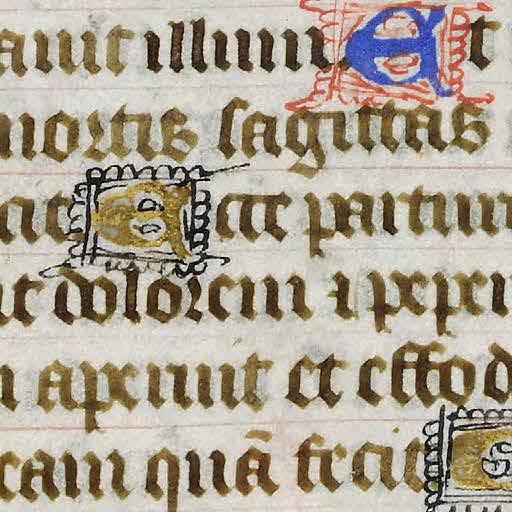 auit illum Et
mortis sagittas
cit Ecce partur
it dolorem ⁊ pepe
aperuit et effod
eam quā fecit